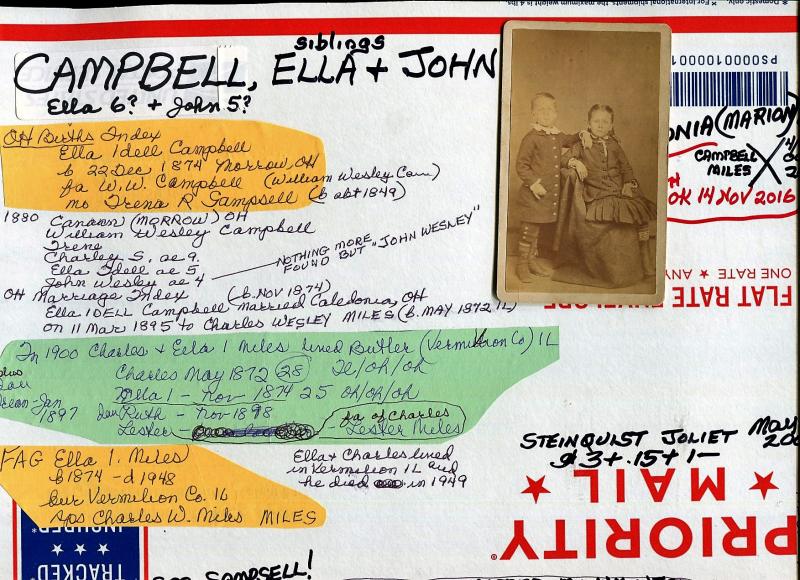 * Domestic only. * For international shipments the maximum weight is 4 lbs.
siblings
CAMPBELL, ELLA + JOHN
Ella 6? + John 5?
PS00001000
(MARION)
CAMPBELL
MILES
OK 14 NOV 2016
OH Births Index
Ella Idell Campbell
b 22 Dec 1874 Morrow, OH
fa W.W. Campbell (William Wesley Cam)
mo Irena R Sampsell (b abt 1849)
1880 Canaan (MORROW) OH
William Wesley Campbell
Irene
Charley S. ae 9.
Ella Idell ae 5
John Wesley ae 4
NOTHING MORE FOUND BUT "JOHN WESLEY"
OH Marriage Index (b. NOV 1874)
Ella IDELL Campbell married Caledonia, OH
on 11 Mar 1895 to Charles WESLEY MILES (b. MAY 1872 IL)
FLAT RATE ENVELOPE
ONE RATE ★ ANY
In 1900 Charles & Ella I Miles lived Butler (Vermilion Co) IL
Charles May 1872 28 Il/oh/oh
Ella I - Nov 1874 25 oh/oh/oh
dau Ruth - Nov 1898
fa of Charles
Lester - Lester Miles
plus
Jan
1897
FAG Ella I. Miles
b 1874 - d 1948
bur Vermilion Co. IL
Aps Charles W. Miles MILES
Ella + Charles lived
in Vermilion IL and
he died in 1949
STEINQUIST JOLIET May
$3 + .15 + 1 -
PRIORITY
★ MAIL ★
INSURED
★ ★ ★
TRACKED
SAMPSELL!